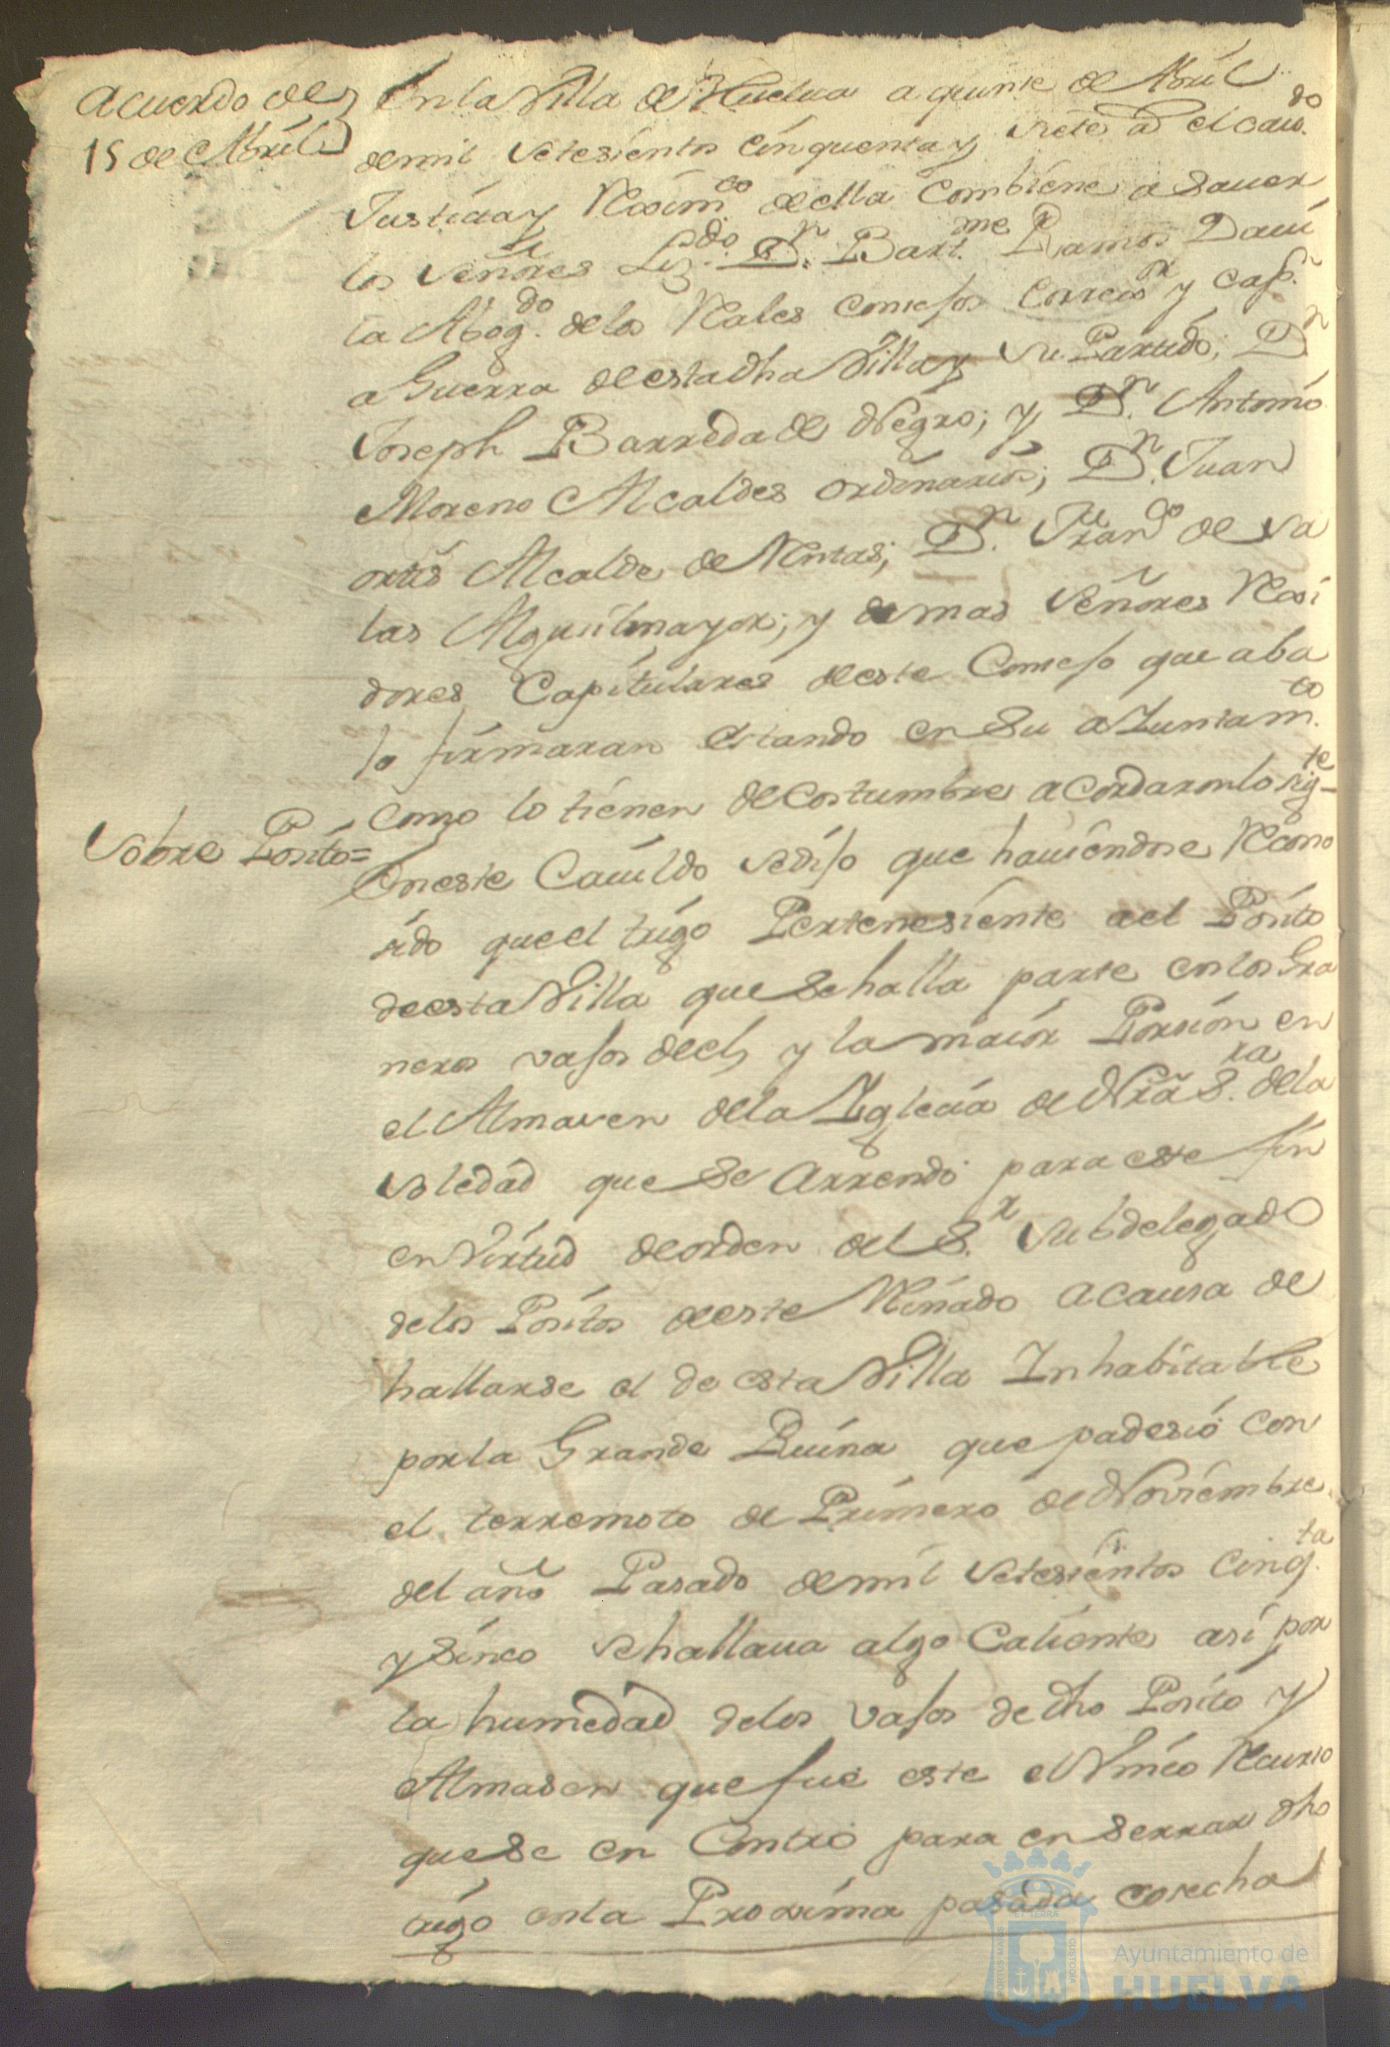 Acuerdo de
15 de Abril
En la Villa de Huelva a quinse de Abril
de mil Setesientos Cinquenta y Siete as el Cavdo.
Justicia y Reximto de ella Combiene a Saver
los Señores Lizdo. Dn. Bartme. Ramos Davi
la Abogdo. de los Reales Consejos Correxor y Capn.
a Guerra de esta dha Villa y Su Partido; Dn.
Joseph Barreda de Negro; y Dn. Antonio
Moreno Alcaldes ordinarios; Dn. Juan
ortis Alcalde de Rentas; Dn. Franco de Sa
las Alguilmayor; y demas Señores Rexi
dores Capitulares de este Consejo que aba
jo firmaran estando en Su aJuntamto.
como lo tienen de Costumbre acordaron lo sigte
Sobre Posito=
En este Cavildo Se dijo que haviendose Recono
sido que el trigo Pertenesiente a el Posito
de esta Villa que Se halla parte en los Gra
neros vasos de el, y la maior Porsion en
el Almasen de la Yglecia de Nra Sra. de la
Soledad que Se Arrendó para este fin
en Virtud de orden del Sr. Subdelegado
de los Positos de este Reinado a causa de
hallarse el de esta Villa Inhabitable
por la Grande Ruina que padesió con
el terremoto de Primero de Noviembre
del año Pasado de mil Setesientos Cinqta.
y Sinco Se hallava algo Caliente asi por
la humedad de los vasos de dho Posito y
Almasen que fue este el Vnico Recurso
que Se en Contró para en Serrar dho
trigo en la Proxima pasada cosecha
Ayuntamiento de
HUELVA